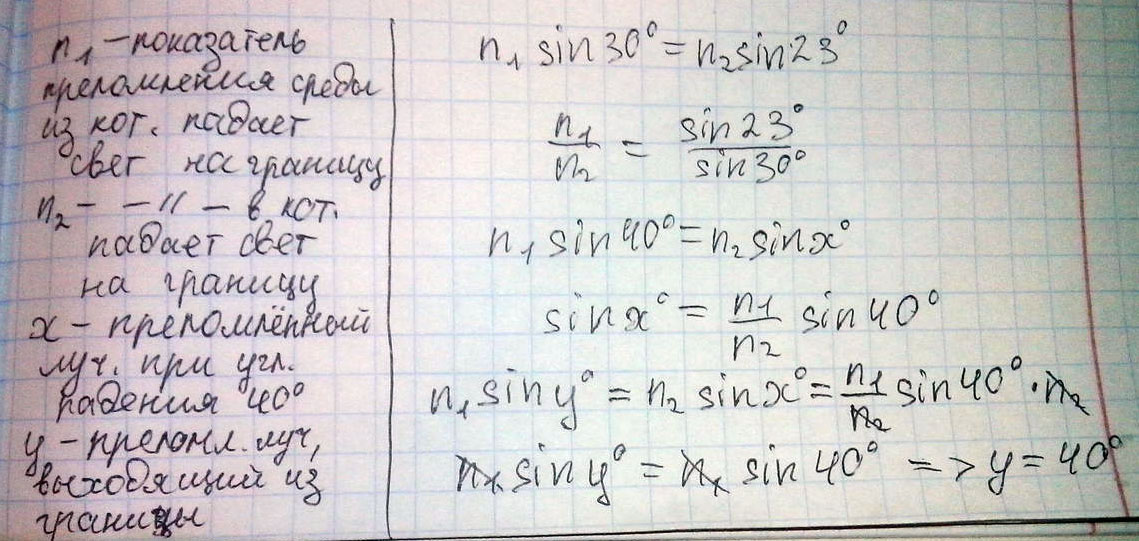 n₁ – показатель
преломления среды
из кот. падает
свет на границу
n₂ – – // – в кот.
падает свет
на границу
x – преломлённый
луч. при угл.
падения 40°
y – преломл. луч,
выходящий из
границы
n₁ sin 30° = n₂ sin 23°
n₁/n₂ = sin 23°/sin 30°
n₁ sin 40° = n₂ sin x°
sin x° = n₁/n₂ sin 40°
n₁ sin y° = n₂ sin x° = n₁/n₂ sin 40° · n₂
n₁ sin y° = n₁ sin 40° => y = 40°